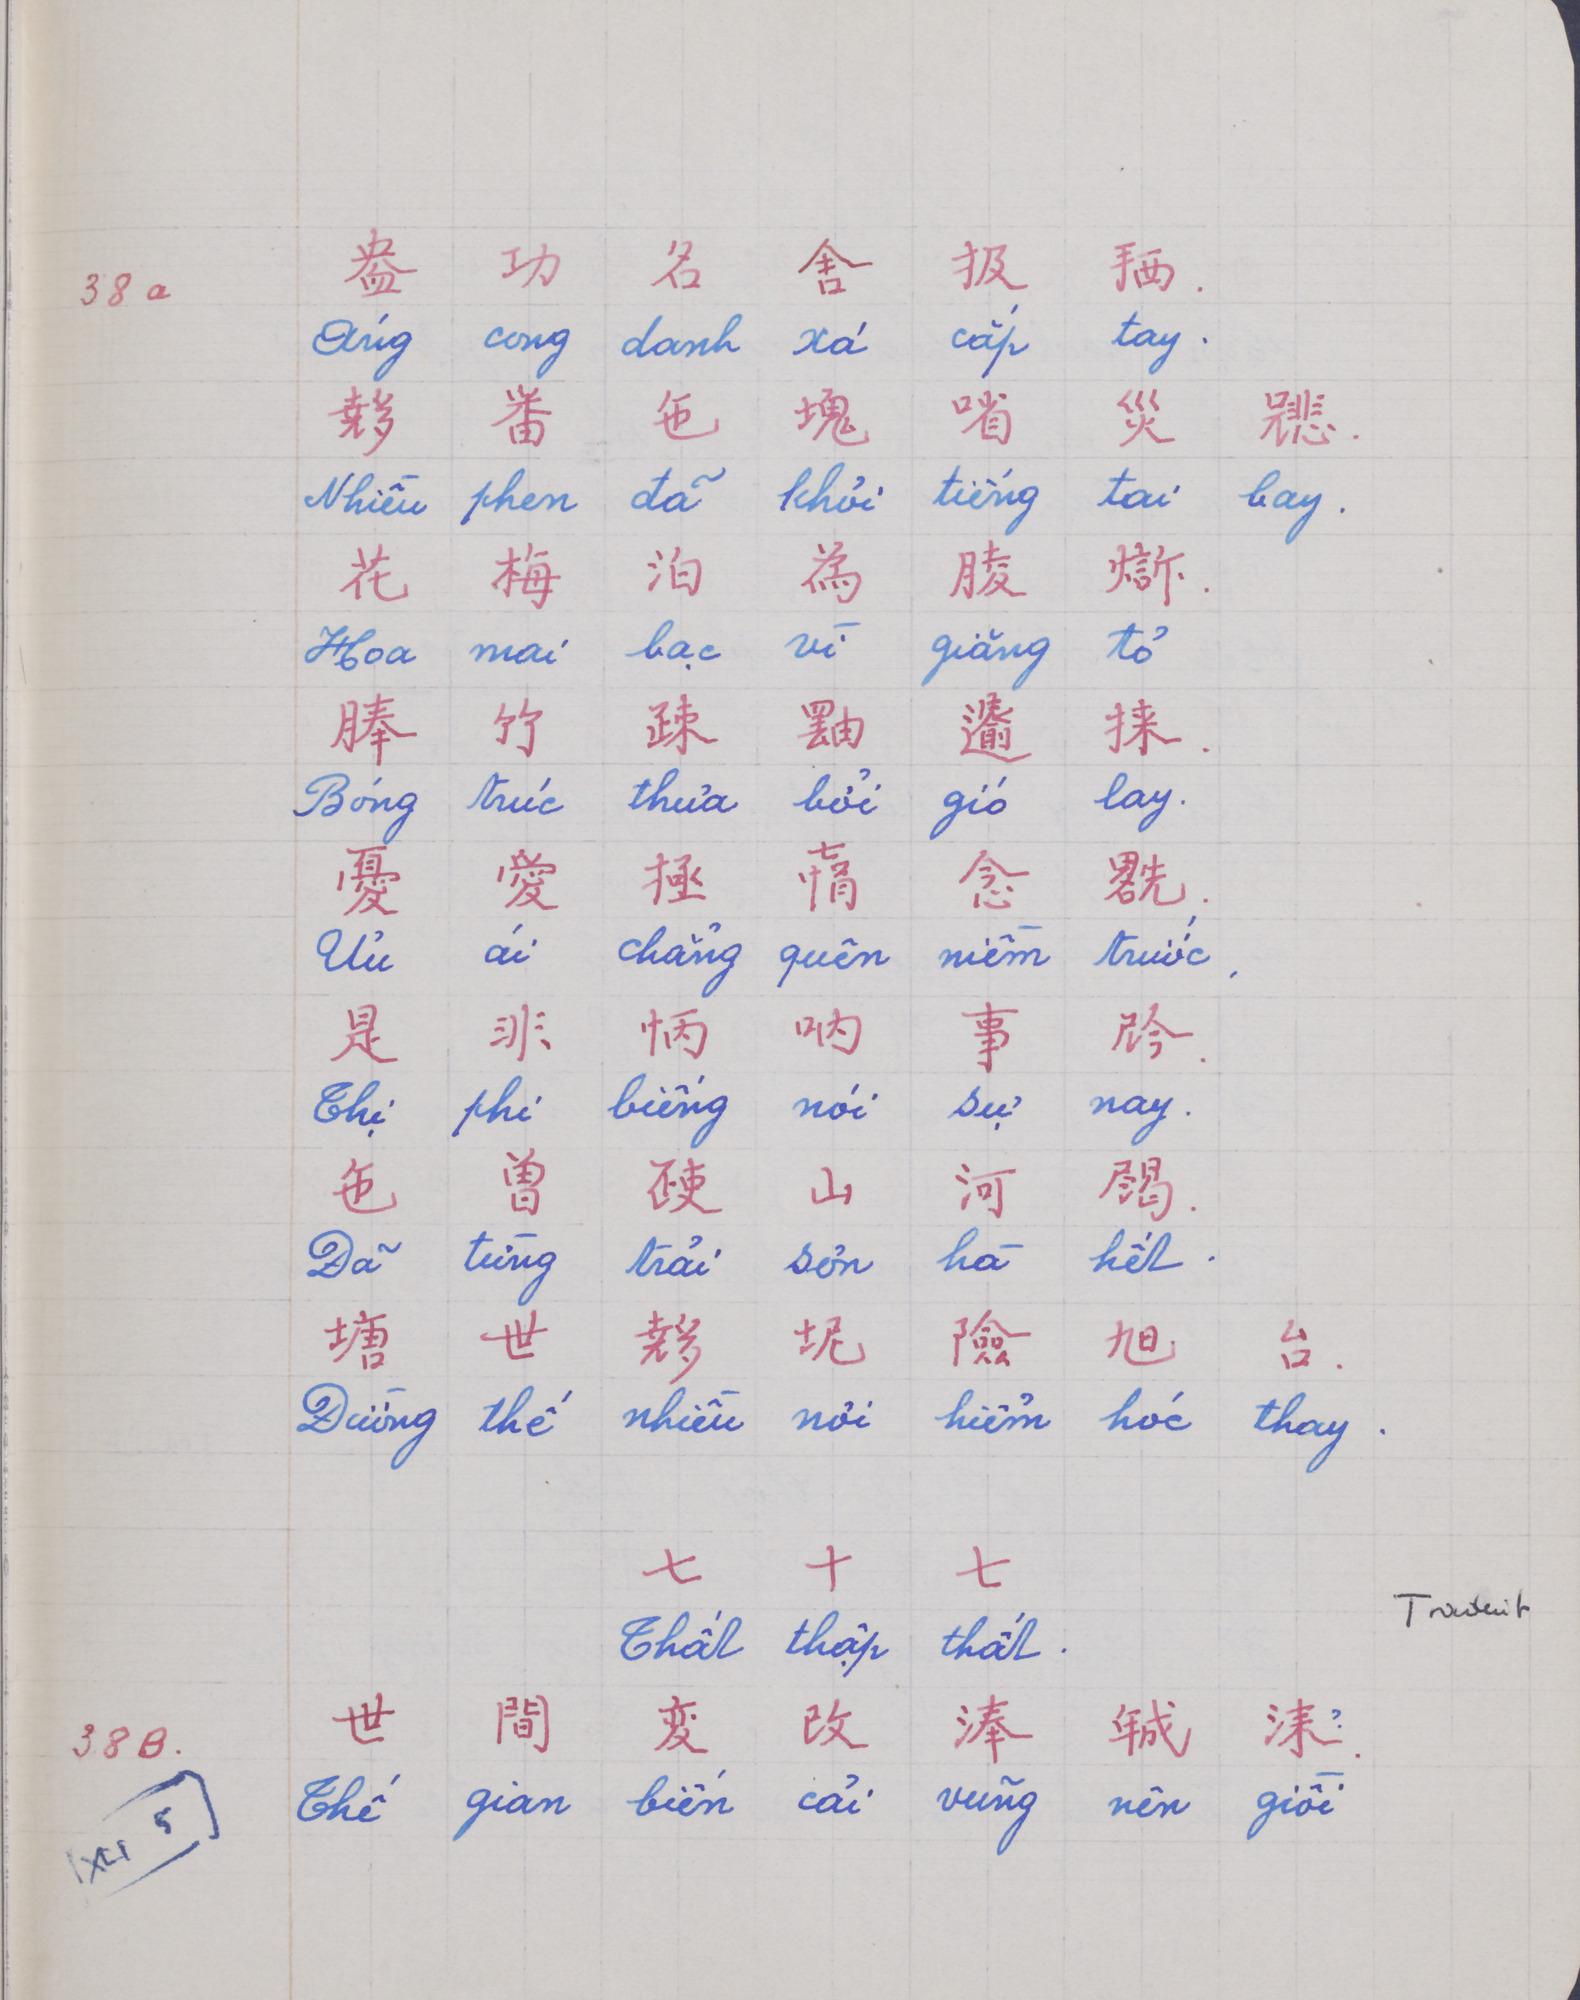 38a
盎 功 名 舍 扱 𢬣.
Áng công danh xá cắp tay.
𡗊 番 㐌 塊 㗂 災 𠎩.
Nhiều phen đã khỏi tiếng tai bay.
花 梅 泊 為 𦝄 𤏣.
Hoa mai bạc vì giăng tỏ
䏾 竹 疎 𤳸 𩙌 捸.
Bóng trúc thưa bởi gió lay.
憂 愛 極 悁 念 𠓀.
Ưu ái chẳng quên niềm trước,
是 非 怲 呐 事 𫢩.
Thị phi biếng nói sự nay.
㐌 曾 𣦰 山 河 歇.
Đã từng trải sơn hà hết.
塘 世 𡗊 坭 險 旭 台.
Đường thế nhiều nơi hiểm hóc thay.
七 十 七
Thất thập thất.
38B.
世 間 変 改 湊 𢧚 涞?.
Thế gian biến cải vũng nên giồi
XLI 5